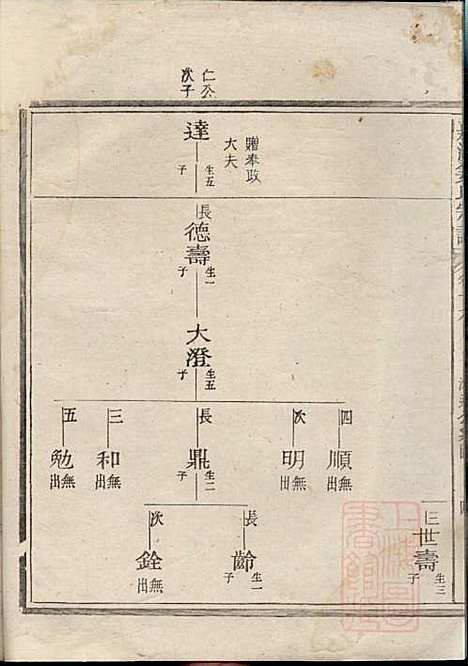 仁公
次子
達
生五
子
贈奉政
大夫
長
德壽
生一
子
大澄
生五
子
四
順
無
出
次
明
無
出
長
鼎
生二
子
三
和
無
出
五
勉
無
出
長
齡
生一
子
次
銓
無
出
三
世壽
生三
子